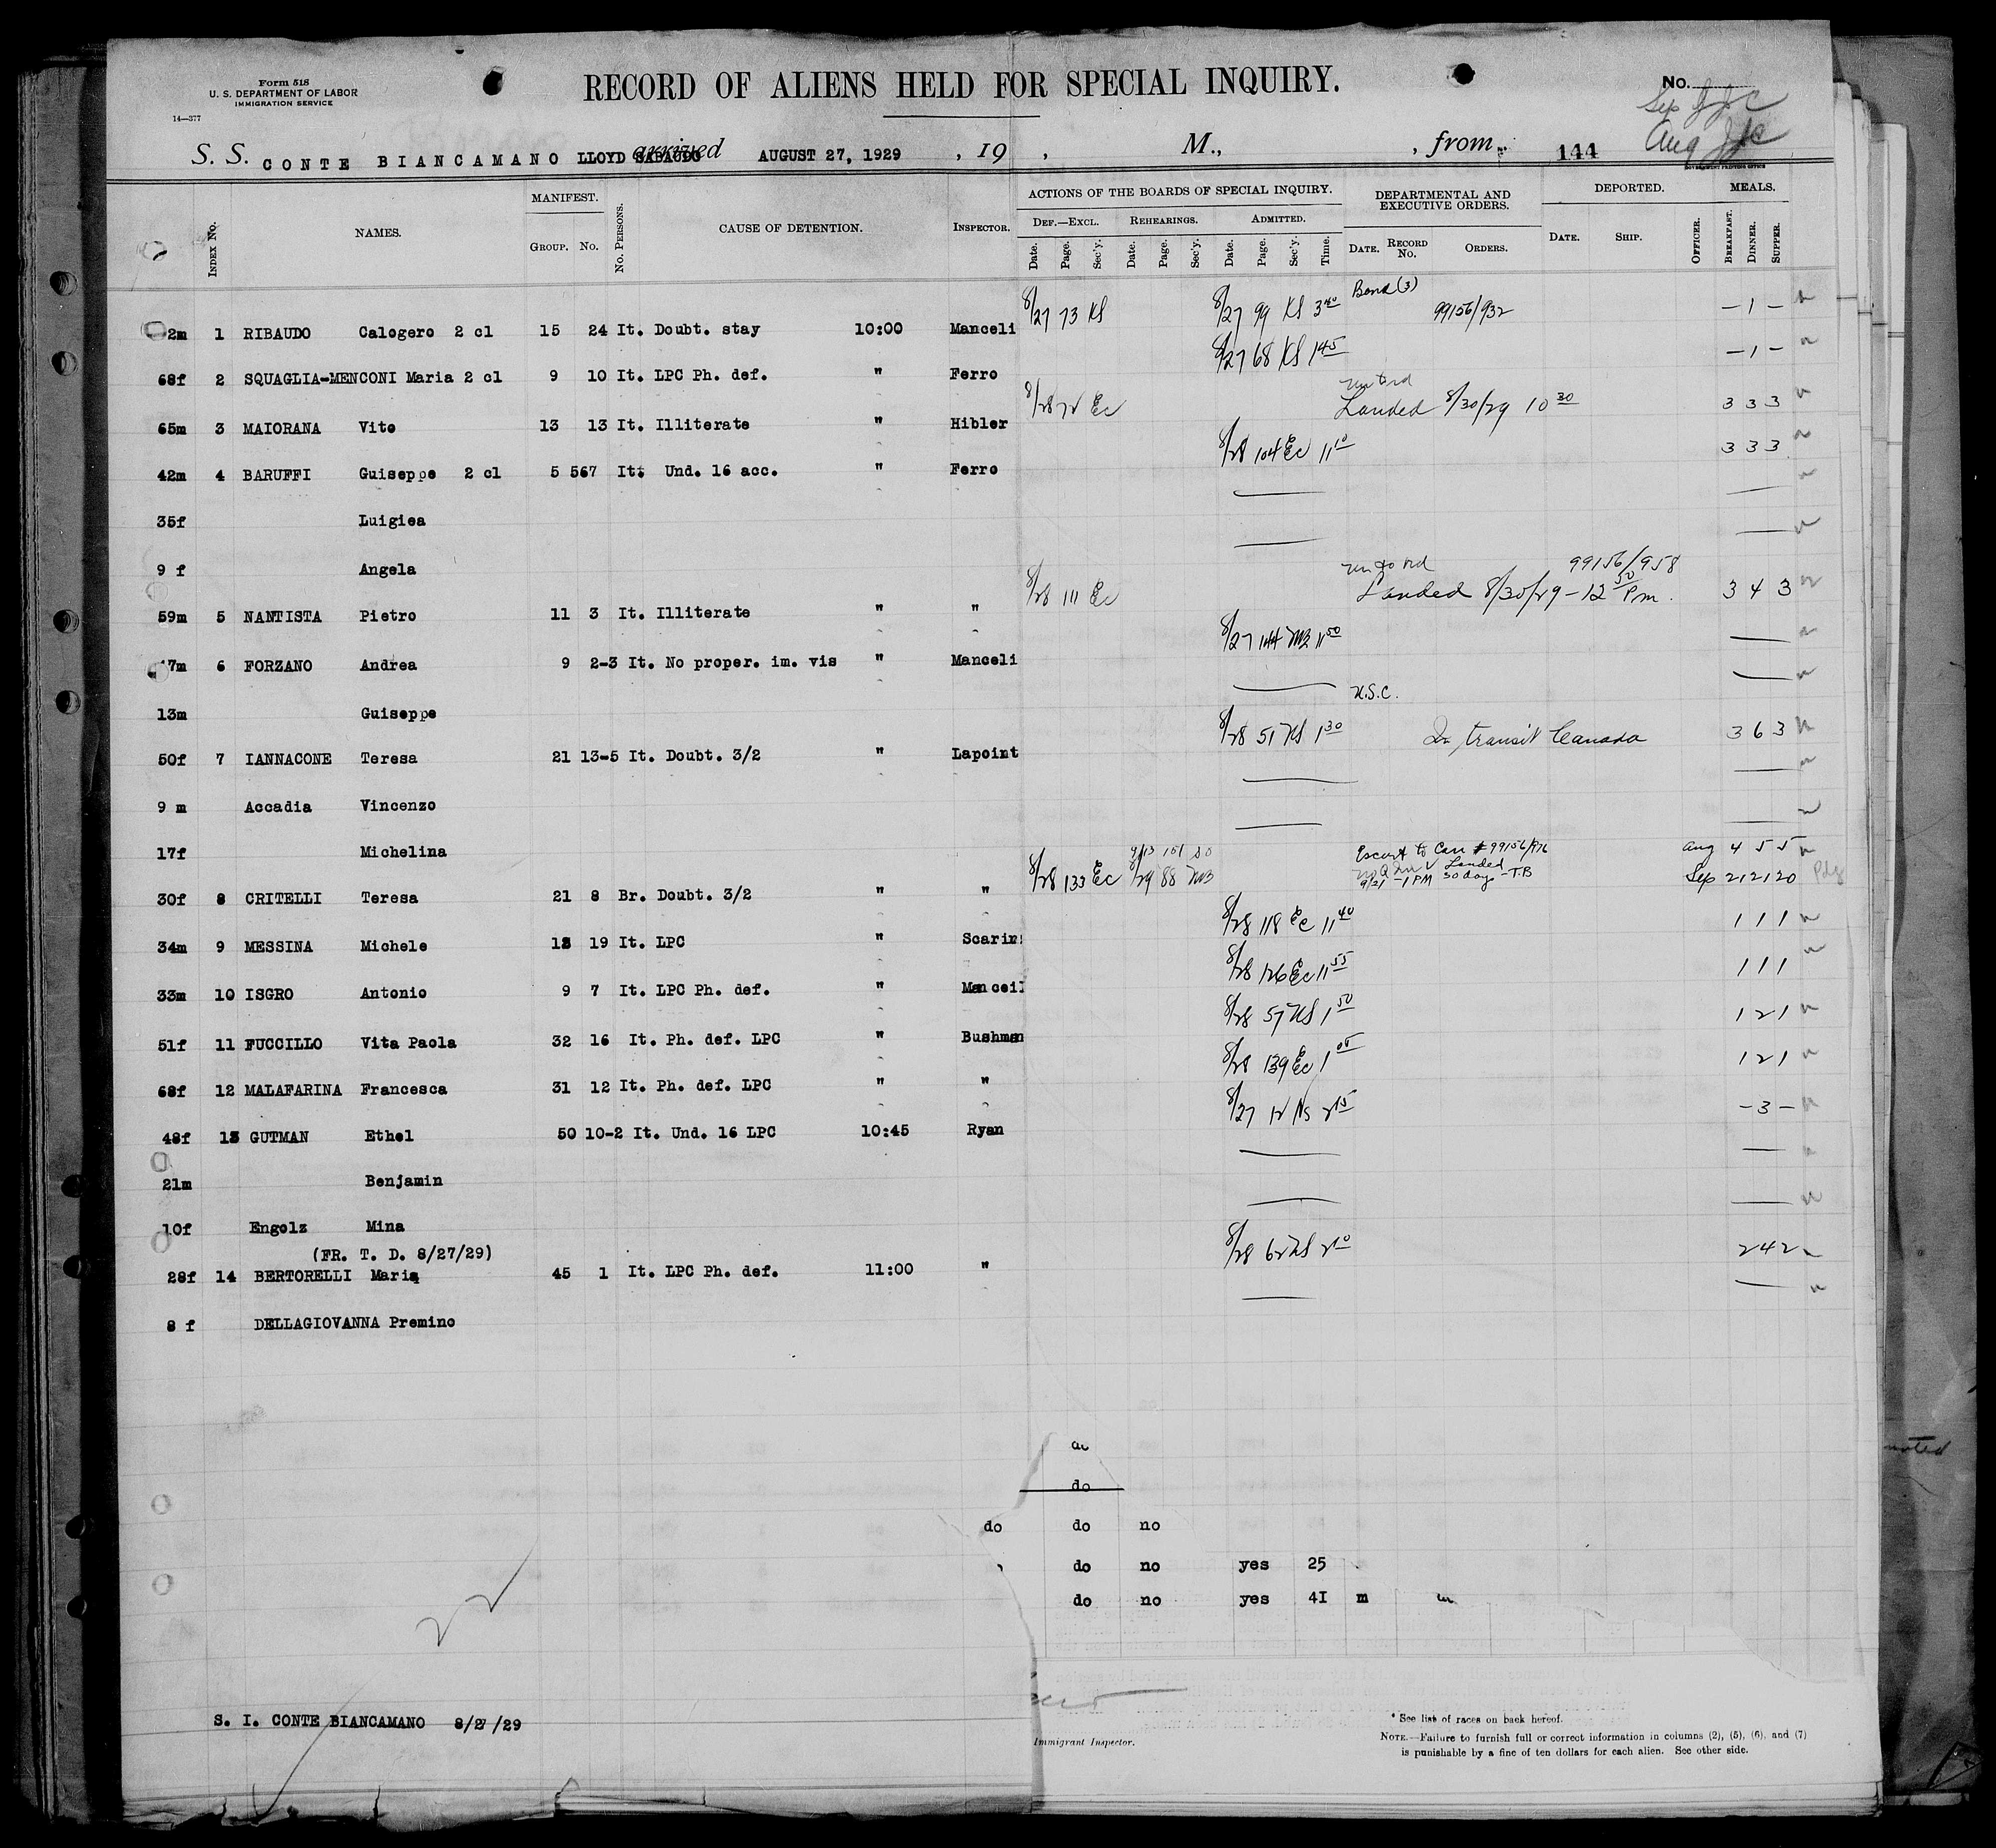 Form 518
U. S. DEPARTMENT OF LABOR
IMMIGRATION SERVICE
14—377
RECORD OF ALIENS HELD FOR SPECIAL INQUIRY.
No.
Sep
Aug
GOVERNMENT PRINTING OFFICE
S. S. CONTE BIANCAMANO LLOYD SABAUDO arrived AUGUST 27, 1929 , 19 , M., , from 144
INDEX No. NAMES. MANIFEST. GROUP. No. No. PERSONS. CAUSE OF DETENTION. INSPECTOR.
ACTIONS OF THE BOARDS OF SPECIAL INQUIRY. DEPARTMENTAL AND EXECUTIVE ORDERS. DEPORTED. MEALS.
DEF.—EXCL. REHEARINGS. ADMITTED.
Date. Page. Sec'y. Date. Page. Sec'y. Date. Page. Sec'y. Time. DATE. RECORD No. ORDERS. DATE. SHIP. OFFICER. BREAKFAST. DINNER. SUPPER.
2m 1 RIBAUDO Calogero 2 cl 15 24 It. Doubt. stay 10:00 Manceli 8/27 73 KS 8/27 99 KS 3 40 Bond (3) 99156/932 – 1 –
68f 2 SQUAGLIA-MENCONI Maria 2 cl 9 10 It. LPC Ph. def. " Ferro 8/27 68 KS 1 45 – 1 –
65m 3 MAIORANA Vito 13 13 It. Illiterate " Hibler 8/28 72 Ec Landed 8/30/29 10 30 3 3 3
42m 4 BARUFFI Guiseppe 2 cl 5 567 It: Und. 16 acc. " Ferro 8/28 104 Ec 11 10 3 3 3
35f Luigiea
9 f Angela
59m 5 NANTISTA Pietro 11 3 It. Illiterate " " 8/28 111 Ec Landed 8/30/29 – 12 50 Pm. 99156/958 3 4 3
7m 6 FORZANO Andrea 9 2-3 It. No proper. im. vis " Manceli 8/27 144 11 50
13m Guiseppe U.S.C.
50f 7 IANNACONE Teresa 21 13-5 It. Doubt. 3/2 " Lapoint 8/28 51 KS 1 30 In transit Canada 3 6 3
9 m Accadia Vincenzo
17f Michelina
30f 8 CRITELLI Teresa 21 8 Br. Doubt. 3/2 " " 8/28 133 Ec 9/13 151 8/29 88 Escort to Can #99156/976 Landed 9/21 – 1 PM 30 days – T.B Aug 4 5 5 Sep 21 21 20
34m 9 MESSINA Michele 18 19 It. LPC " Scarin 8/28 118 Ec 11 40 1 1 1
33m 10 ISGRO Antonio 9 7 It. LPC Ph. def. " Manceil 8/28 126 Ec 11 55 1 1 1
51f 11 FUCCILLO Vita Paola 32 16 It. Ph. def. LPC " Bushman 8/28 57 KS 1 50 1 2 1
68f 12 MALAFARINA Francesca 31 12 It. Ph. def. LPC " " 8/28 139 Ec 1 05 1 2 1
48f 13 GUTMAN Ethel 50 10-2 It. Und. 16 LPC 10:45 Ryan 8/27 12 2 15 – 3 –
21m Benjamin
10f Engolz Mina
(FR. T. D. 8/27/29)
28f 14 BERTORELLI Maria 45 1 It. LPC Ph. def. 11:00 " 8/28 62 KS 2 10 2 4 2
8 f DELLAGIOVANNA Premino
do
do do no
do no yes 25
do no yes 41 m
S. I. CONTE BIANCAMANO 8/27/29
Immigrant Inspector.
* See list of races on back hereof.
NOTE.—Failure to furnish full or correct information in columns (2), (5), (6), and (7)
is punishable by a fine of ten dollars for each alien. See other side.
noted